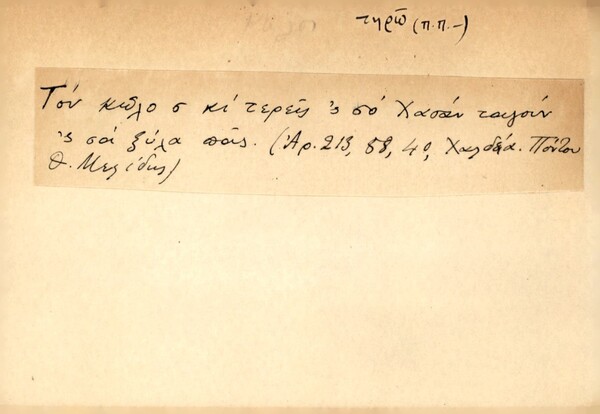 τηρῶ (π.π.-)
Τὸν κῶλο σ κὶ τερεῖς 'ς σὸ Χασὰν ταγοὺν
'ς σὰ ξύλα πᾶς. (Ἀρ. 213, 58, 40, Χαλδία. Πόντου
Θ. Μελίδης)